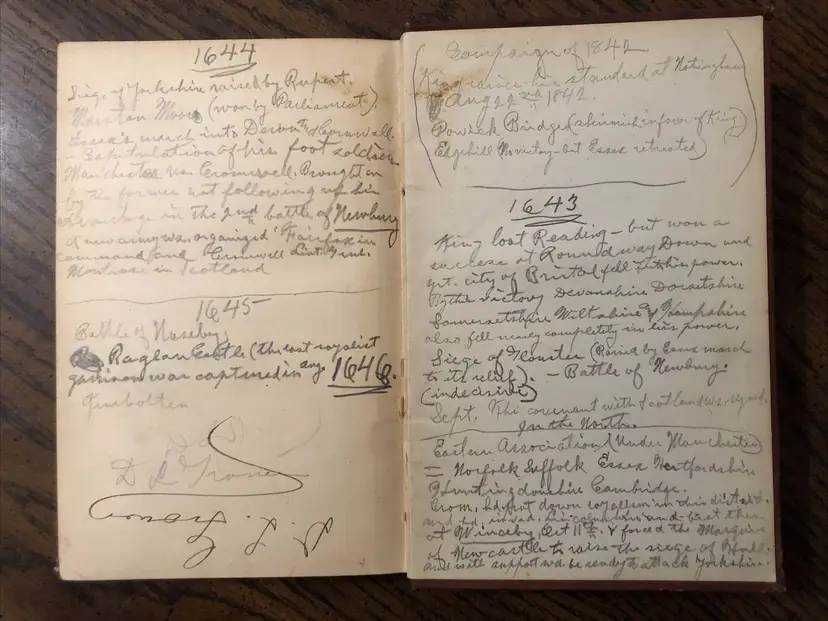 1644
Siege of Yorkshire raised by Rupert.
Marston Moor (won by Parliament).
Essex's march into Devon & Cornwall.
– Capitulation of his foot soldiers
Manchester vs. Cromwell. Brought on
by the former not following up his
advantage in the 2nd battle of Newbury
A new army ws. organized Fairfax in
command and Cromwell Lint. Genl.
Montrose in Scotland
1645
Battle of Naseby
Raglan Castle (the last royalist
garrison was captured in Aug. 1646.
Kimbolten
D L
Campaign of 1842
King raises his standard at Notingham
Aug 22nd 1842.
Powick Bridge (skirmish in favor of King)
Edgehill No victory – but Essex retreated)
1643
King lost Reading – but won a
success at Roundway Down and
grt. city of Bristol fell into his power.
By the victory Devonshire Dorsetshire
Somersetshire Wiltshire & Hampshire
also fell nearly completely in his power.
Siege of Glouster (Raised by Essex march
to its relief). – Battle of Newbury.
(indecisive)
Sept. The covenant with Scotland ws. signed.
In the North.
Eastern Association (Under Manchester)
= Norfolk Suffolk Essex Hertfordshire
Huntingdonshire Cambridge.
Crom. hd. put down royalism in this district.
and beat them
at Winceby Oct 11th & forced the Marquis
of Newcastle to raise the siege of Hull.
and with support wd be ready to attack Yorkshire.